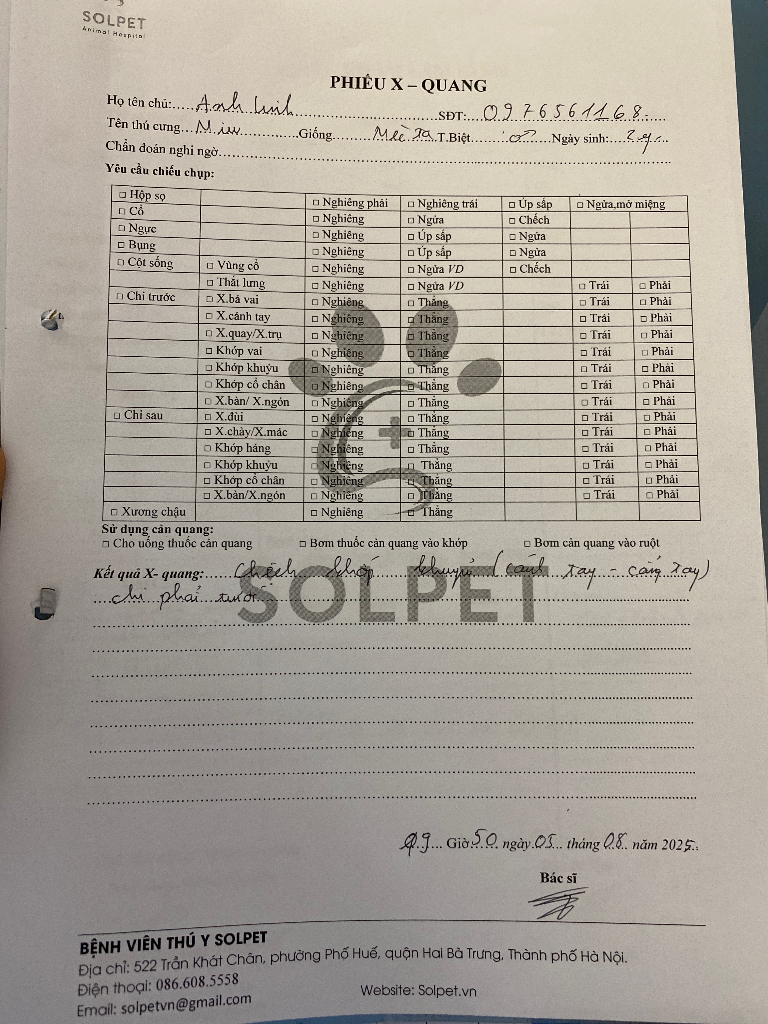 SOLPET
Animal Hospital
PHIẾU X – QUANG
Họ tên chủ:.....Anh Linh.....SĐT:...0976561168.
Tên thú cưng...Miu...Giống...Mèo Ta T.Biệt...♂...Ngày sinh:...2y...
Chẩn đoán nghi ngờ.....
Yêu cầu chiếu chụp:
□ Hộp sọ □ Nghiêng phải □ Nghiêng trái □ Úp sấp □ Ngửa,mở miệng
□ Cổ □ Nghiêng □ Ngửa □ Chếch
□ Ngực □ Nghiêng □ Úp sấp □ Ngửa
□ Bụng □ Nghiêng □ Úp sấp □ Ngửa
□ Cột sống □ Vùng cổ □ Nghiêng □ Ngửa VD □ Chếch
□ Thắt lưng □ Nghiêng □ Ngửa VD □ Trái □ Phải
□ Chi trước □ X.bả vai □ Nghiêng □ Thẳng □ Trái □ Phải
□ X.cánh tay □ Nghiêng □ Thẳng □ Trái □ Phải
□ X.quay/X.trụ □ Nghiêng □ Thẳng □ Trái □ Phải
□ Khớp vai □ Nghiêng □ Thẳng □ Trái □ Phải
□ Khớp khuỷu □ Nghiêng □ Thẳng □ Trái □ Phải
□ Khớp cổ chân □ Nghiêng □ Thẳng □ Trái □ Phải
□ X.bàn/ X.ngón □ Nghiêng □ Thẳng □ Trái □ Phải
□ Chi sau □ X.đùi □ Nghiêng □ Thẳng □ Trái □ Phải
□ X.chày/X.mác □ Nghiêng □ Thẳng □ Trái □ Phải
□ Khớp háng □ Nghiêng □ Thẳng □ Trái □ Phải
□ Khớp khuỷu □ Nghiêng □ Thẳng □ Trái □ Phải
□ Khớp cổ chân □ Nghiêng □ Thẳng □ Trái □ Phải
□ X.bàn/X.ngón □ Nghiêng □ Thẳng □ Trái □ Phải
□ Xương chậu □ Nghiêng □ Thẳng
Sử dụng cản quang:
□ Cho uống thuốc cản quang □ Bơm thuốc cản quang vào khớp □ Bơm cản quang vào ruột
Kết quả X- quang:.....Chệch khớp khuỷu (cánh tay - cẳng tay)
chi phải trước
SOLPET
09... Giờ 50 ngày 05... tháng 08.. năm 2025..
Bác sĩ
BỆNH VIÊN THÚ Y SOLPET
Địa chỉ: 522 Trần Khát Chân, phường Phố Huế, quận Hai Bà Trưng, Thành phố Hà Nội.
Điện thoại: 086.608.5558
Email: solpetvn@gmail.com Website: Solpet.vn